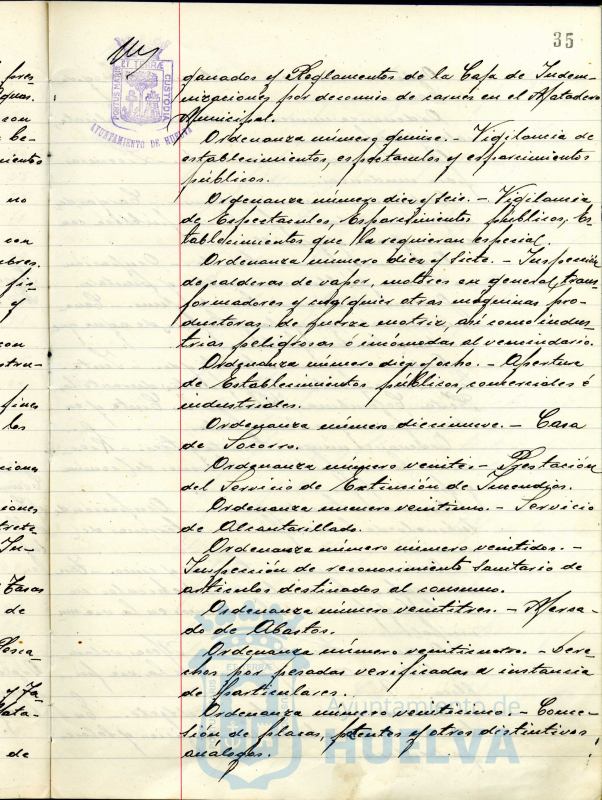 35
PORTUS MARIS ET TERRAE CUSTODIA
AYUNTAMIENTO DE HUELVA
ganados y Reglamentos de la Caja de Indem-
nizaciones por decomiso de carnes en el Matadero
Municipal.
Ordenanza número quince. - Vigilancia de
establecimientos, espectaculos y esparcimientos
públicos.
Ordenanza número diez y seis. - Vigilancia
de Espectaculos, Esparcimientos publicos, Es-
tablecimientos que la requieran especial.
Ordenanza número diez y siete. - Inspección
de calderas de vapor, motores en general, trans-
formadores y cualquier otras maquinas pro-
ductoras de fuerza motriz, así como indus-
trias peligrosas ó incómodas al vencindario.
Ordenanza número diez y ocho. - Apertura
de Establecimientos públicos, comerciales é
industriales.
Ordenanza número diecinueve. - Casa
de Socorro.
Ordenanza número veinte. - Prestación
del Servicio de Extinción de Incendios.
Ordenanza número veintiuno. - Servicio
de Alcantarillado.
Ordenanza número número veintidos. -
Inspección de reconocimiento Sanitario de
articulos destinados al consumo.
Ordenanza número veintitres. - Merca-
do de Abastos.
Ordenanza número veinticuatro. - Dere-
chos por pesadas verificadas a instancia
de particulares.
Ordenanza número veinticinco. - Conce-
sión de placas, patentes y otros distintivos
análogos.
Ayuntamiento de
HUELVA